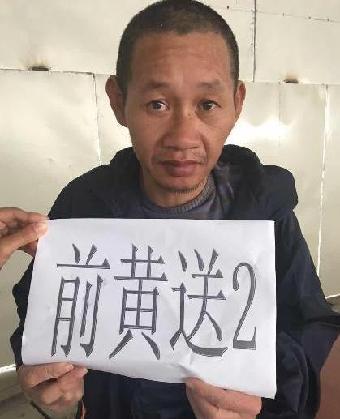 前黄送2